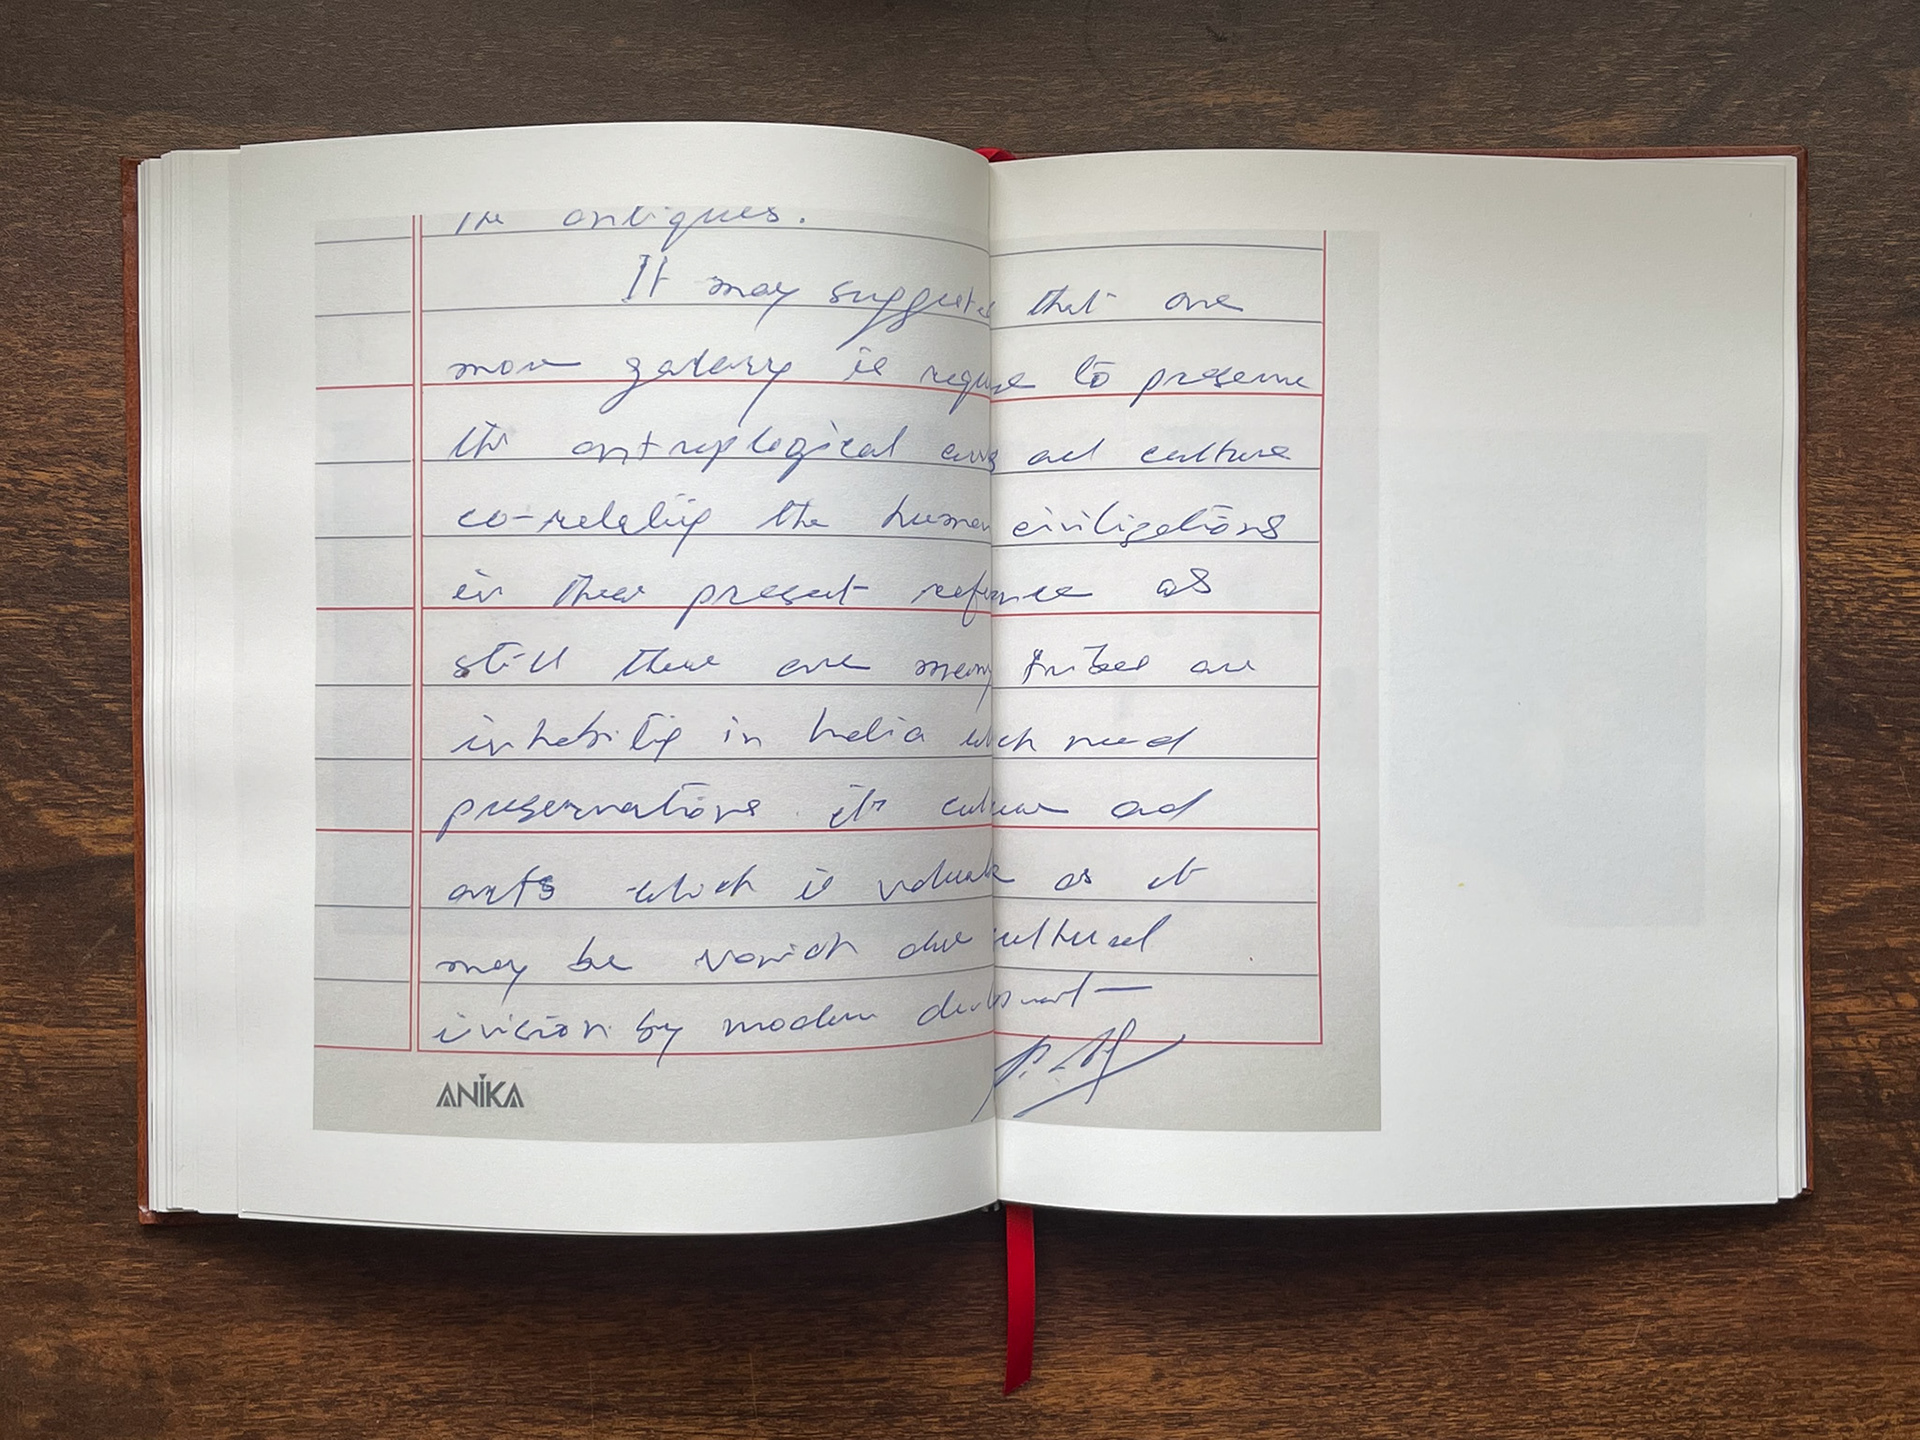 the antiques.
It may suggest that one
more gallery is require to preserve
the antroplogical and culture
co-relating the human civilizations
in their present reference as
still there are many tribes are
inhabiting in India which need
preservations its culture and
arts which is valuable as it
may be vanish due cultural
invision by modern
ANIKA